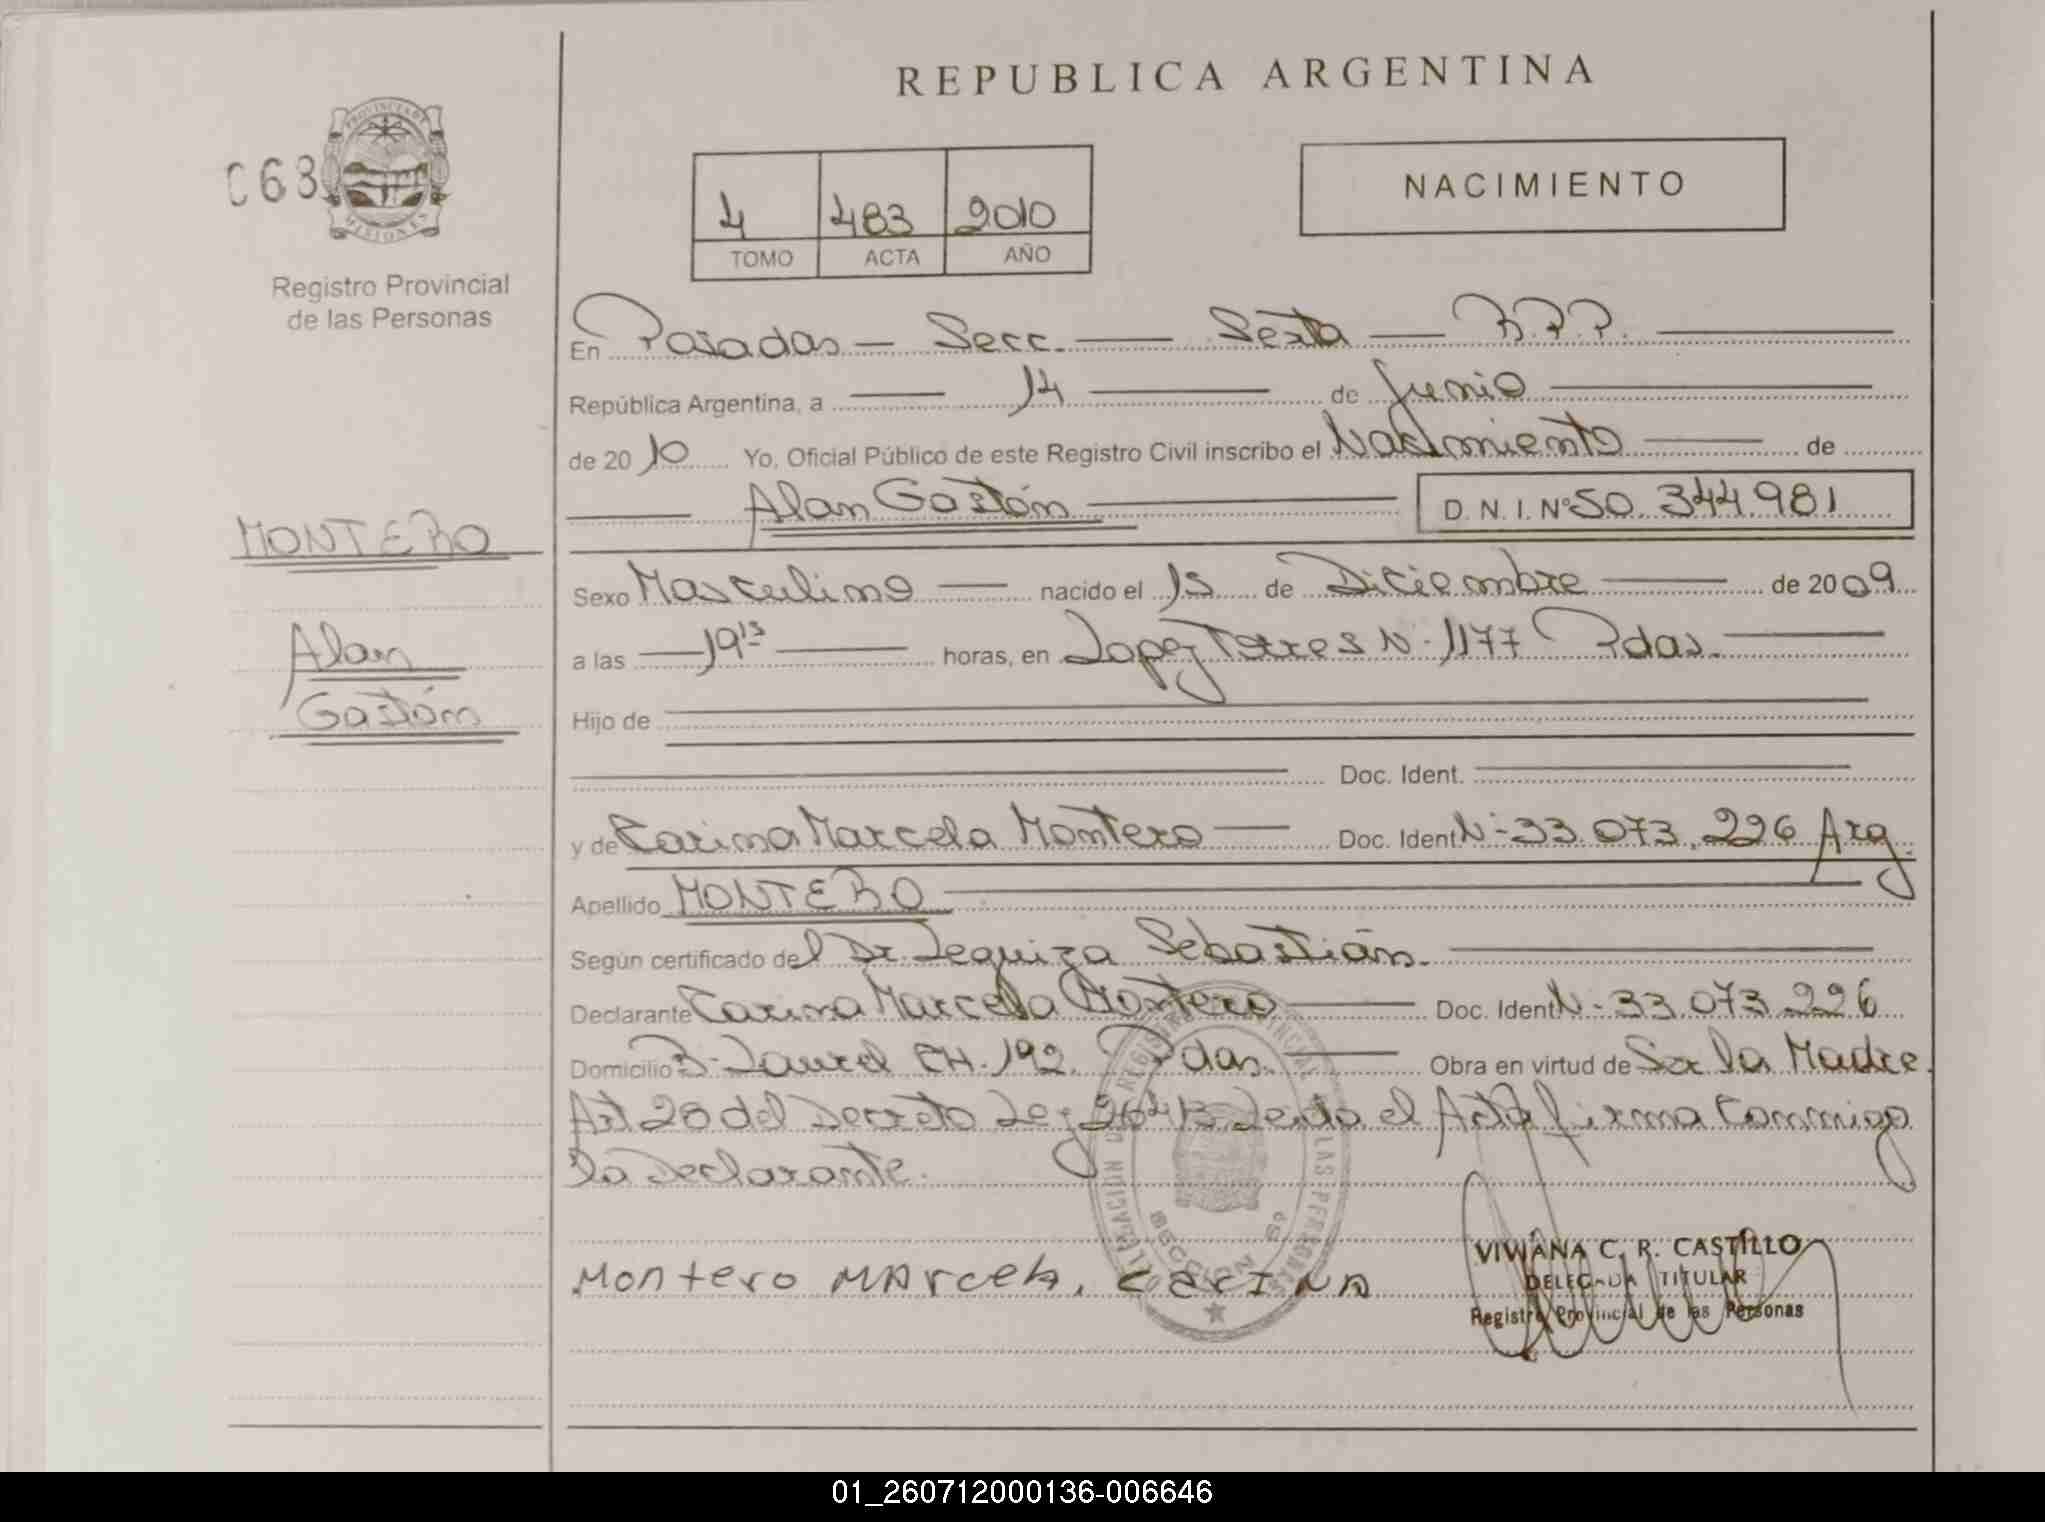 REPUBLICA ARGENTINA
C63
PROVINCIA DE MISIONES
4 483 2010
TOMO ACTA AÑO
NACIMIENTO
Registro Provincial
de las Personas
En Posadas - Secc. Sexta R.P.P.
República Argentina, a 14 de Junio
de 2010 Yo, Oficial Público de este Registro Civil inscribo el Nacimiento de
Alan Gastón D.N.I. Nº 50.344.981
MONTERO
Sexo Masculino nacido el 15 de Diciembre de 2009
Alan
Gastón
a las 19 15 horas, en Lopez Torres N- 1177 Pdas.
Hijo de
Doc. Ident.
y de Carina Marcela Montero Doc. Ident N- 33.073.226 Arg.
Apellido MONTERO
Según certificado del Dr. Leguiza Sebastián.
Declarante Carina Marcela Montero Doc. Ident N- 33.073.226
Domicilio B- Laurel CH. 192. Pdas. Obra en virtud de Ser la Madre.
Art 28 del Decreto Ley Leida el Acta firma Conmigo
la Declarante.
DELEGACION REGISTRO PROVINCIAL DE LAS PERSONAS
SECCION 6º
Montero MArcela, CarINA
VIVIANA C. R. CASTILLO
DELEGADA TITULAR
Registro Provincial de las Personas
01_260712000136-006646